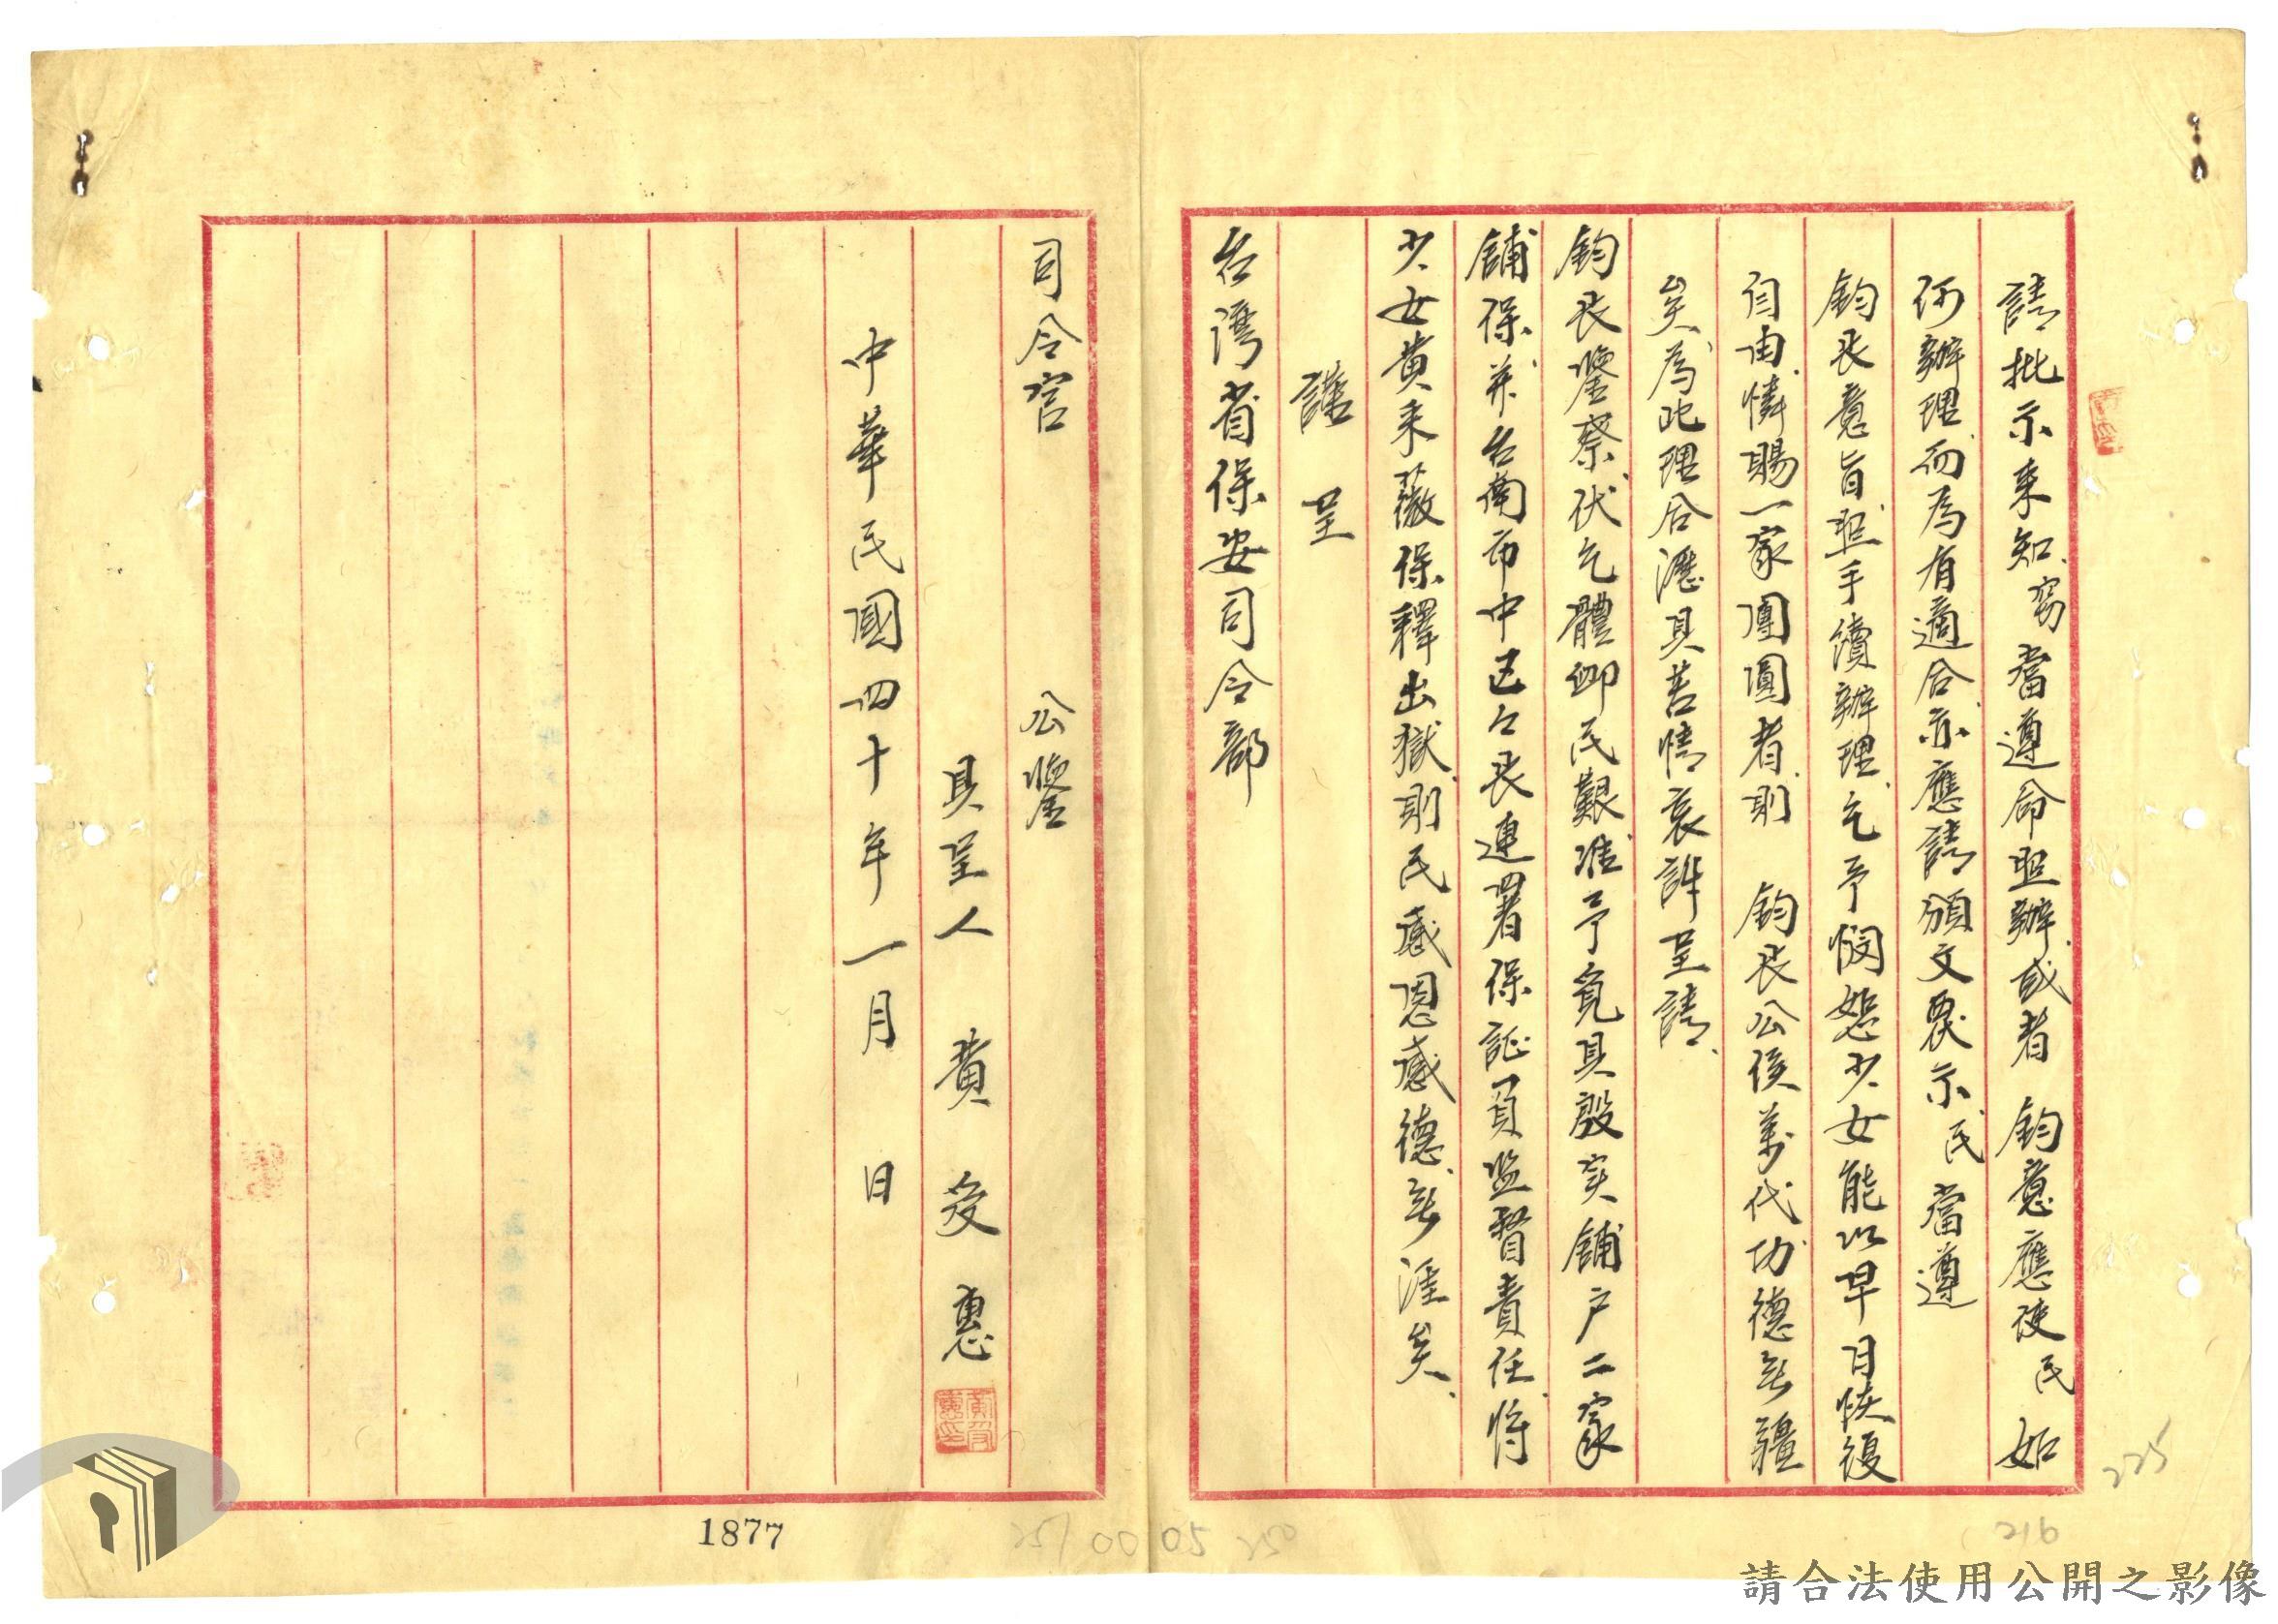 請批示來知、窃當遵命照辦、或者　鈞意應使民如
何辦理、而為有適合、亦應請頒文裏示、民當遵
鈞長意旨、照手續辦理、乞予憫恕少女能以早日恢復
自由、憐賜一家團圓者、則　鈞長公侯萬代功德無疆
矣、為此理合瀝具苦情哀訴呈請、
鈞長鑒察、伏乞體卹民艱、准予覓具殷实舖户二家
舖保、并台南市中區區長連署保証負監督責任、將
少女黃采薇保釋出獄、則民感恩感德、無涯矣、
謹　呈
台灣省保安司令部
司令官　　公鑒
具呈人　黃受惠
中華民國四十年一月　日
1877
225
216
251 00 05 250
請合法使用公開之影像